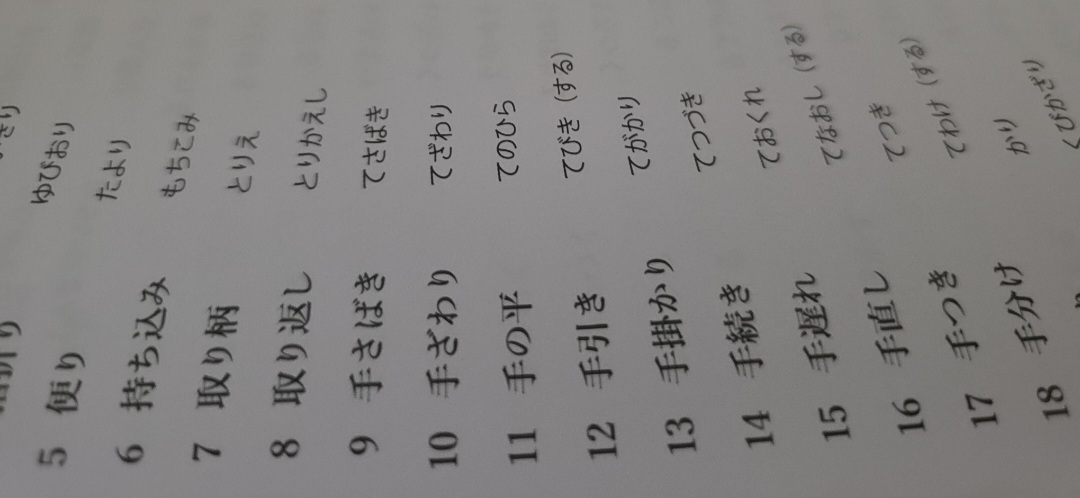 折り ゆびおり
5 便り たより
6 持ち込み もちこみ
7 取り柄 とりえ
8 取り返し とりかえし
9 手さばき てさばき
10 手ざわり てざわり
11 手の平 てのひら
12 手引き てびき (する)
13 手掛かり てがかり
14 手続き てつづき
15 手遅れ ておくれ
16 手直し てなおし (する)
17 手つき てつき
18 手分け てわけ (する)
かり
くびかざり